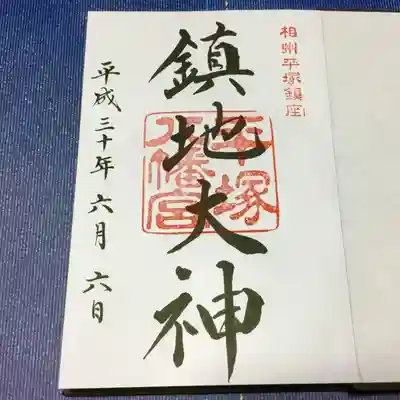 相州平塚鎮座
鎮地大神
平塚
八幡宮
平成三十年六月六日